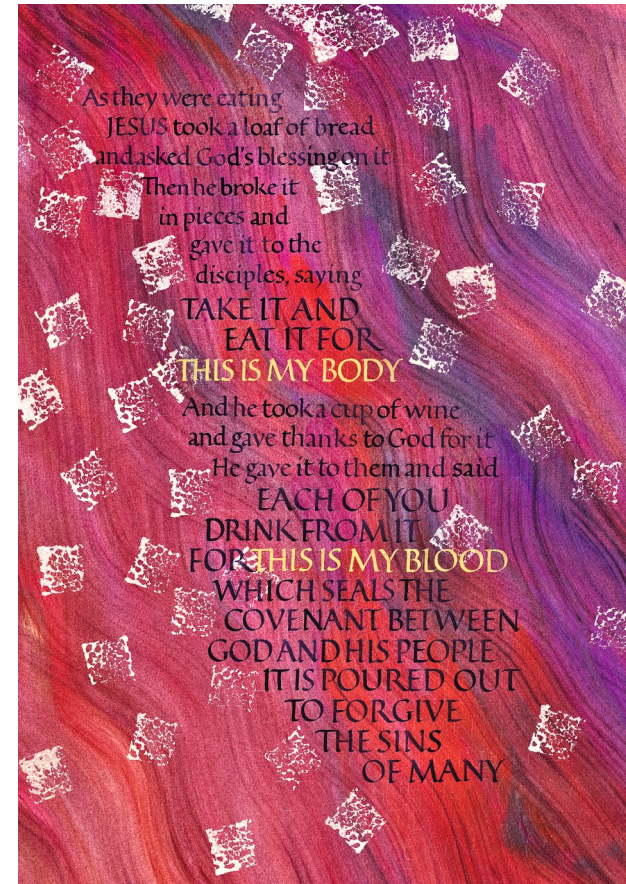 As they were eating
JESUS took a loaf of bread
and asked God's blessing on it
Then he broke it
in pieces and
gave it to the
disciples, saying
TAKE IT AND
EAT IT FOR
THIS IS MY BODY
And he took a cup of wine
and gave thanks to God for it
He gave it to them and said
EACH OF YOU
DRINK FROM IT
FOR THIS IS MY BLOOD
WHICH SEALS THE
COVENANT BETWEEN
GOD AND HIS PEOPLE
IT IS POURED OUT
TO FORGIVE
THE SINS
OF MANY